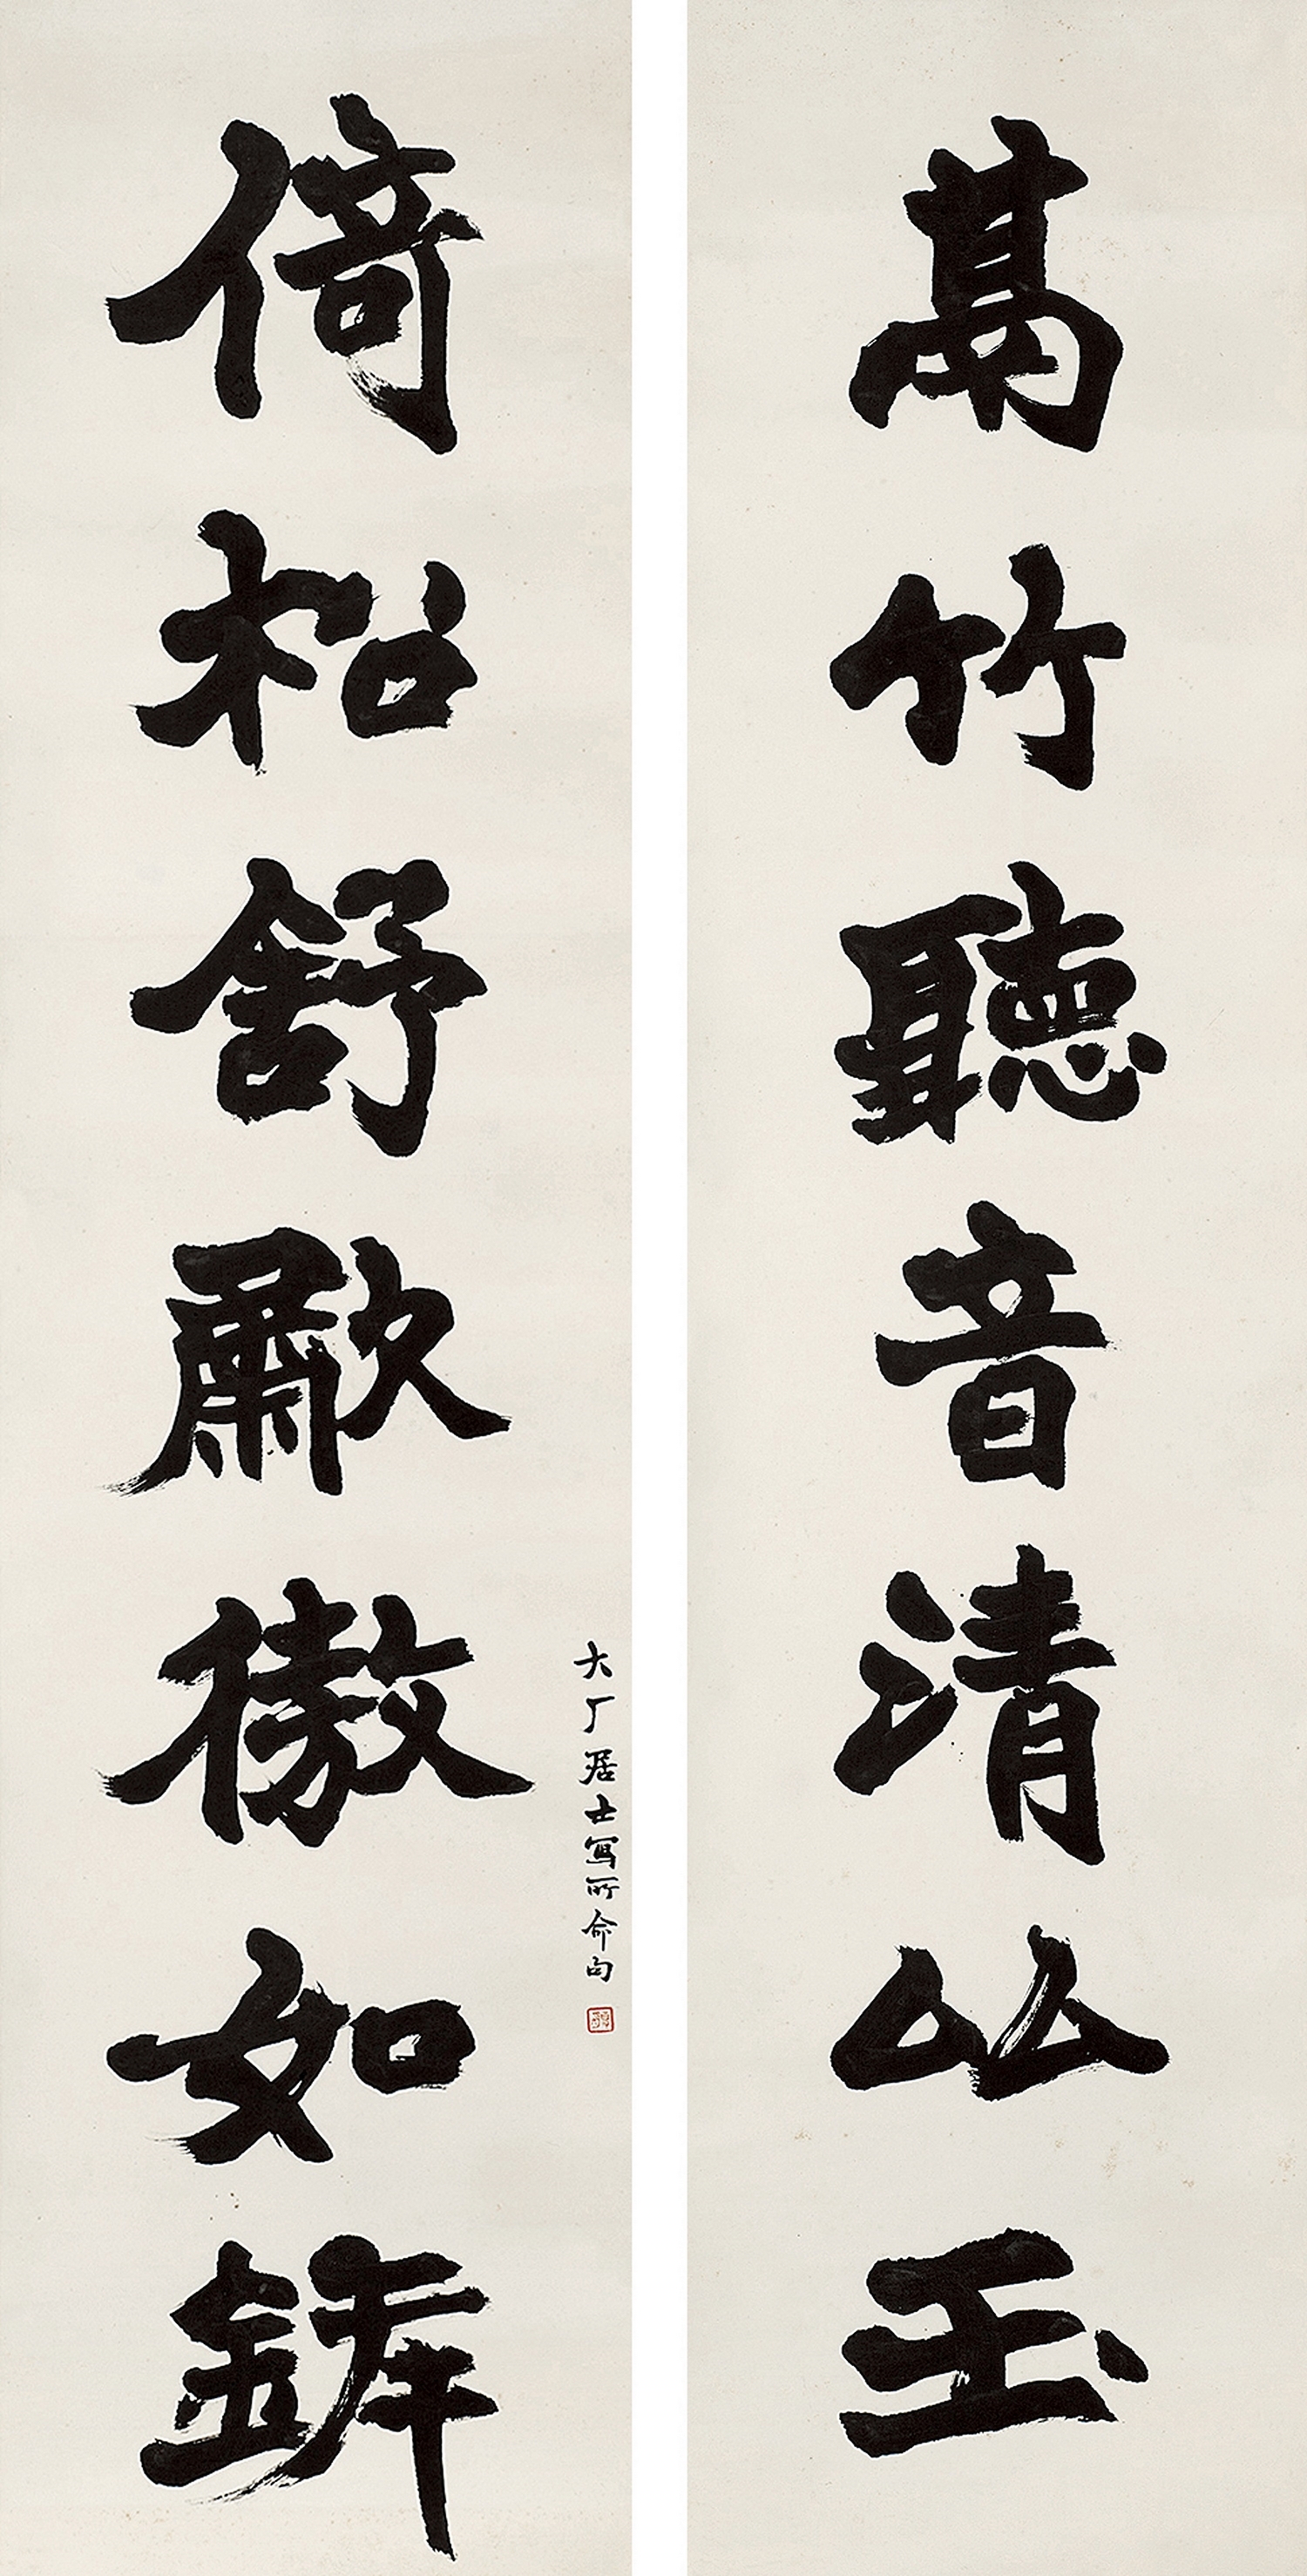 萬竹聽音清厸玉
倚松舒歗傲如
大厂居士寫所命句